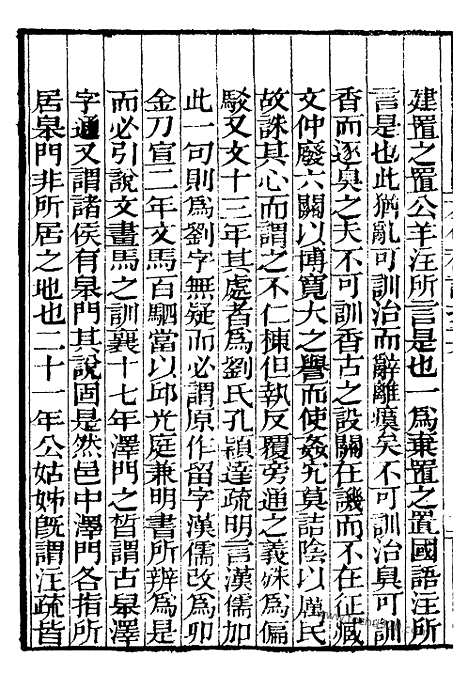 建置之置公羊注所言是也一爲棄置之置國語注所
言是也此猶亂可訓治而辭離瘼矣不可訓治臭可訓
香而逐臭之夫不可訓香古之設關在譏而不在征臧
文仲廢六關以博寛大之譽而使姦宄莫詰陰以厲民
故誅其心而謂之不仁棟但執反覆旁通之義殊爲偏
駁又文十三年其處者爲劉氏孔穎達疏明言漢儒加
此一句則爲劉字無疑而必謂原作留字漢儒改爲卯
金刀宣二年文馬百駟當以邱光庭兼明書所辨爲是
而必引說文畫馬之訓襄十七年澤門之晳謂古皐澤
字通又謂諸侯有皐門其說固是然邑中澤門各指所
居皐門非所居之地也二十一年公姑姊旣謂注疏皆